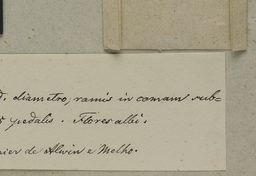 diametro, ramis in comam sub=
pedalis. Flores albi.
de Alvin e Melho.